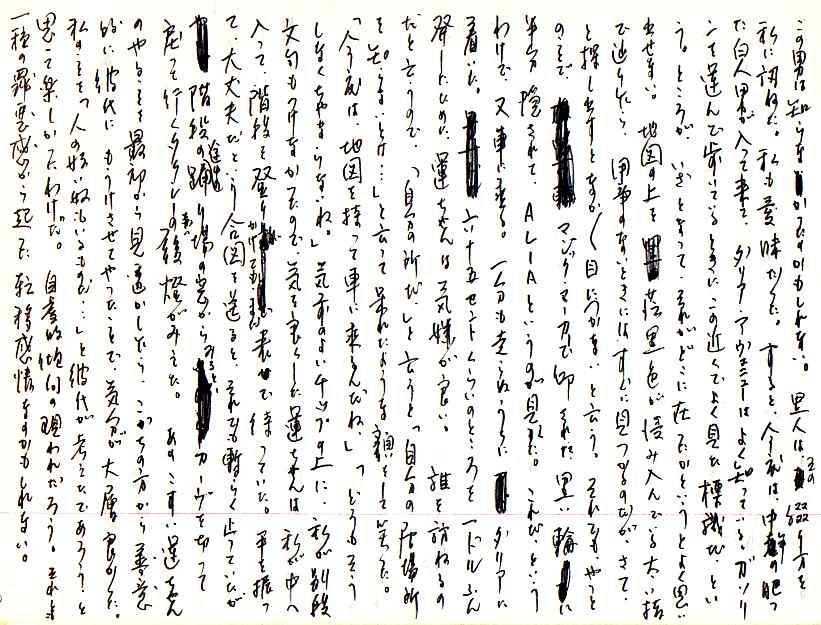 この男は知らないのかもしれない。黒人は、その辺り方を
私に訊ねた。私も曖昧だった。すると、今度は中年の肥っ
た白人男が入って来て、ダリア・アヴェニューはよく知っている。ガソリ
ンを運んで歩いているときに、この近くでよく見た標識だ、とい
う。ところが、いざとなって、それがどこに在ったかというとよく思い
出せない。地図の上を
で辿りたら、用事のないときにはすぐに見つかるのだが、さて、
と探し出すとなかなか目につかない、と言う。それでも、やっと
のことで、マジック・マーカーで印された黒い輪に
半分隠されて、ＡＬＩＡというのが見えた。これだ、という
わけで、又車に乗る。一分も走らぬうちに ダリアに
着いた。六十五セントくらいのところを一ドルふん
発したために、運ちゃんは気嫌が良い。誰を訪ねるの
だと言うので、「自分の所だ」と言うと「自分の居場所
を知らないとは…」と言って呆れたような顔をして笑った。
「今度は、地図を持って車に乗るんだね。」「どうもそう
しなくちゃならないね。」気前のよいチップの上に、私が別段
文句もつけなかったので、気を良くした運ちゃんは、私が中へ
入って、階段を登りかけても、まだ表で待っていた。手を振っ
て、大丈夫だという合図を送ると、それでも暫らく止っていたが
階段の途中の踊り場の窓からみると、カーヴを切って
戻って行くタクシーの赤い後燈がみえた。あのこすい運ちゃん
のやることを最初から見透かしたら、こっちの方から善意
的に彼に もうけさせてやったことで、気分が大層良かった。
私のことを「人の好い奴もいるものだ…」と彼が考えたであろう、と
思って楽しかったわけだ。自虐的傾向の現われだろう。それは
一種の罪悪感から起った転移感情なのかもしれない。